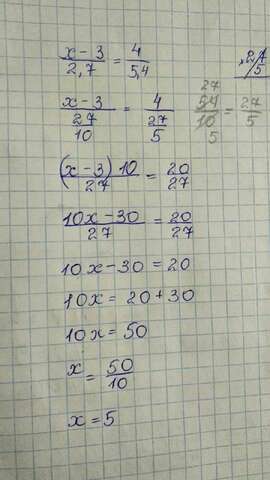 x - 3 / 2,7 = 4 / 5,4
x - 3 / 27/10 = 4 / 27/5
54/10 = 27/5
27
5
(x - 3) 10 / 27 = 20 / 27
10x - 30 / 27 = 20 / 27
10x - 30 = 20
10x = 20 + 30
10x = 50
x = 50 / 10
x = 5